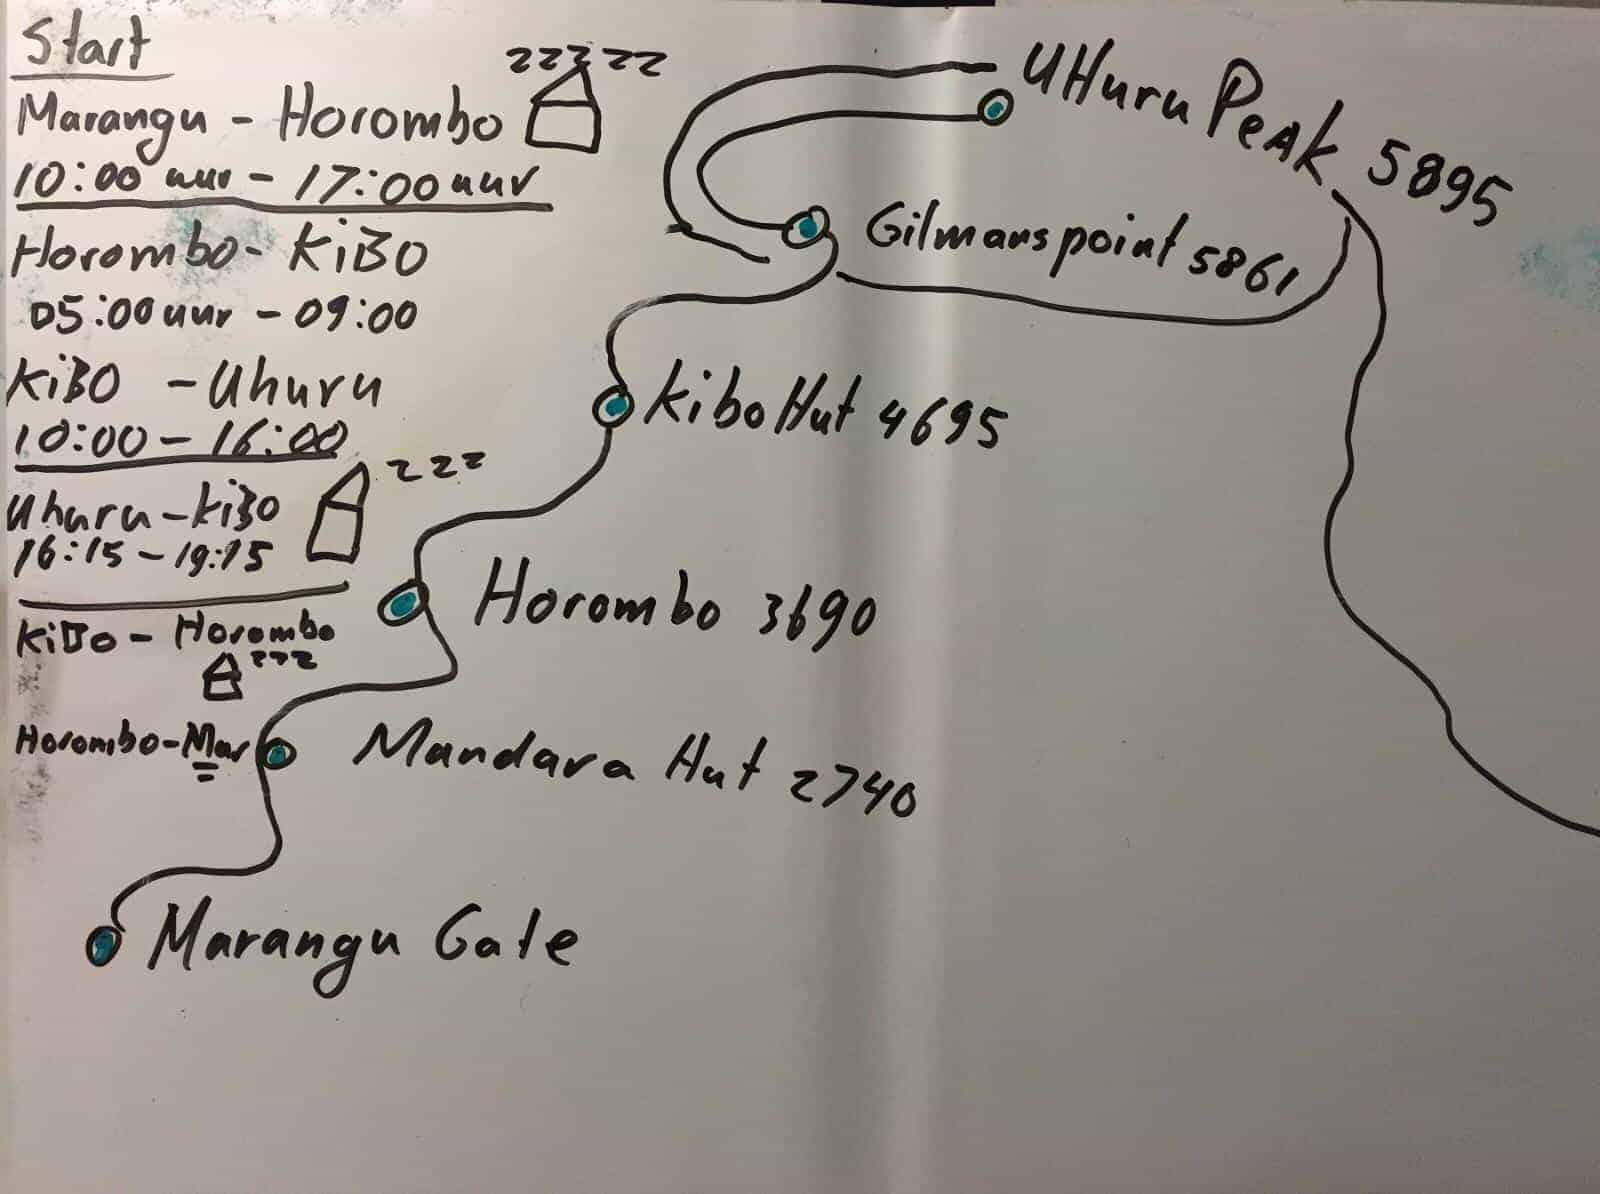 Start
zzzzz
Marangu - Horombo
10:00 uur - 17:00 uur
Horombo - KiBO
05:00 uur - 09:00
KiBO - Uhuru
10:00 - 16:00
zzz
Uhuru - kiBo
16:15 - 19:15
KiBo - Horombo
zzz
Horombo - Mar
UHuru Peak 5895
Gilmans point 5861
kibo Hut 4695
Horombo 3690
Mandara Hut 2740
Marangu Gate